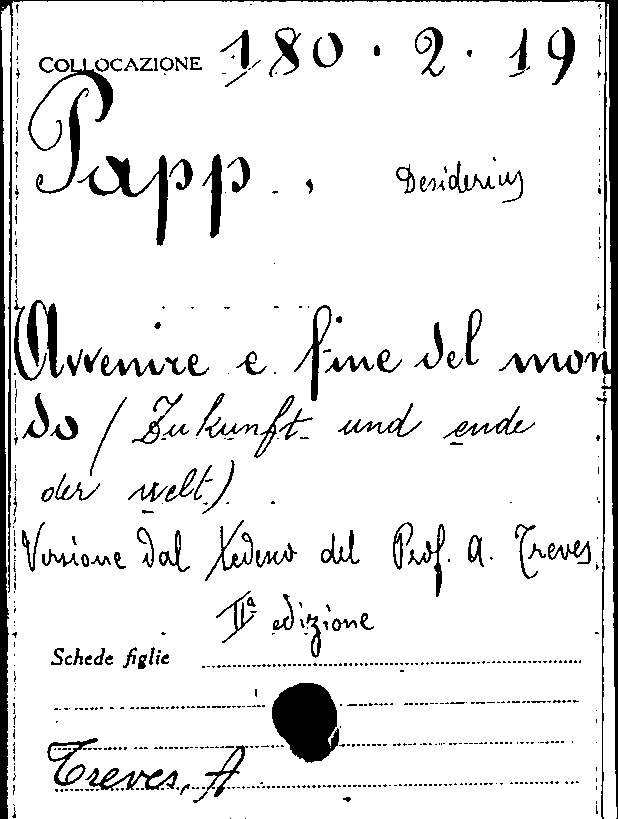 COLLOCAZIONE 180 · 2 · 19
Papp, Desiderius
Avvenire e fine del mon
do (Zukunft und ende
der welt).
Versione dal tedesco del Prof. A. Treves
IIª edizione
Schede figlie
Treves, A